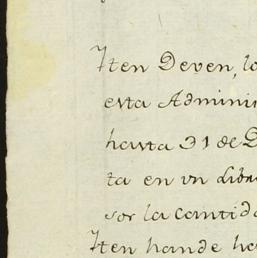 Iten Deven, lo
esta Admini
hasta 31 de D
ta en un Libr
sor la Cantid
Iten hande he